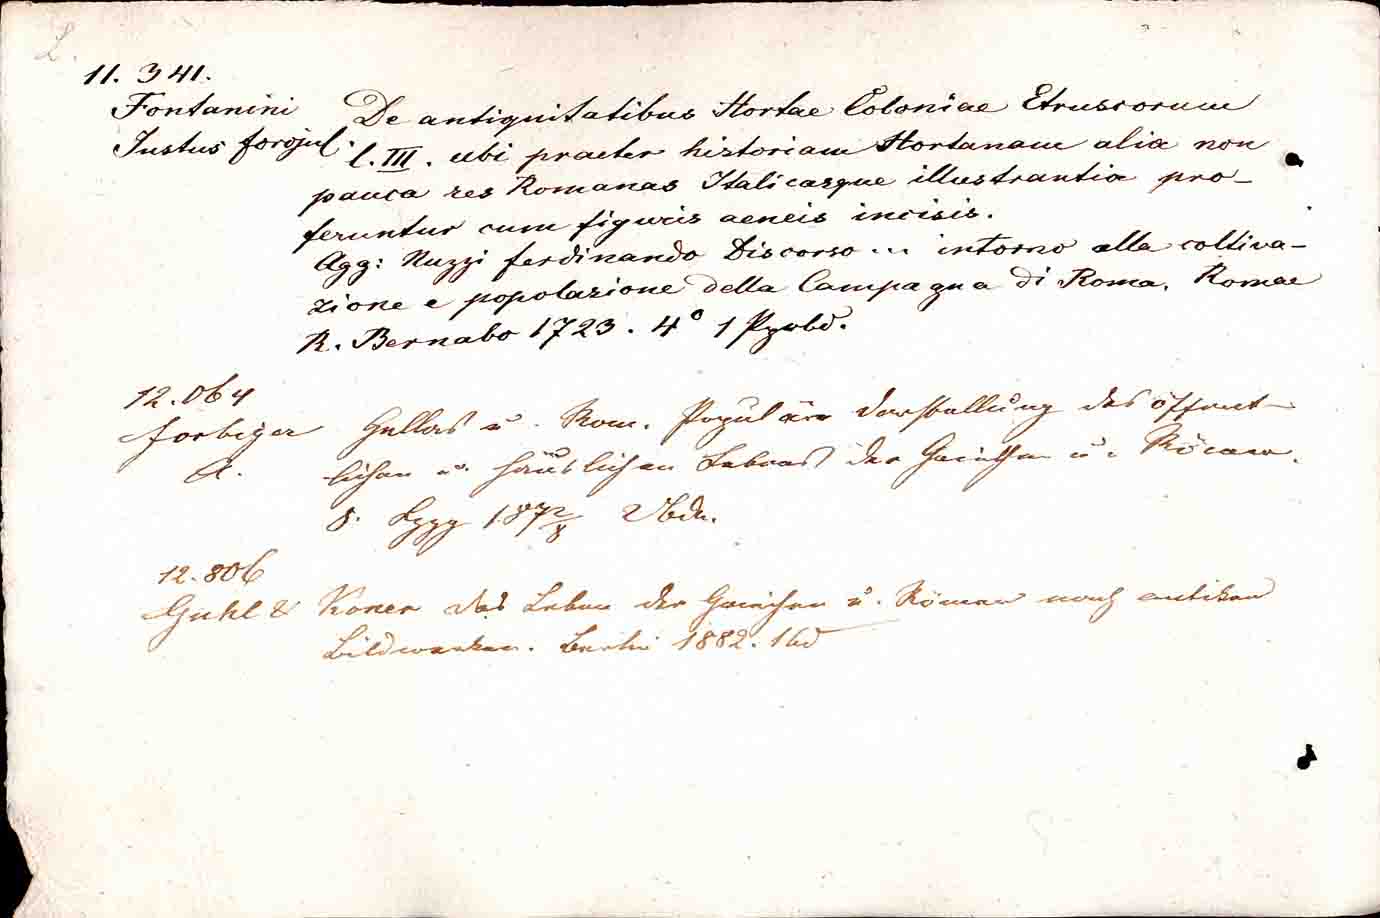 L.
11. 341.
Fontanini De antiquitatibus Hortae Coloniae Etruscorum
Justus forojul. l. III. ubi praeter historiam Hortanam alia non
pauca res Romanas Italicasque illustrantia pro-
feruntur cum figuris aeneis incisis.
Agg: Nuzzi ferdinando Discorso ... intorno alla coltiva-
zione e popolazione della Campagna di Roma. Romae
R. Bernabo 1723. 4° 1 Pgmbd.
12.064
forbiger Hellas u. Rom. Populäre Darstellung des öffent-
A. lichen u. häuslichen Lebens der Griechen u. Römer.
8. Lpzg 1872/8
12.806
Guhl & Koner das Leben der Griechen u. Römer nach antiken
Bildwerken. Berlin 1882. 1bd